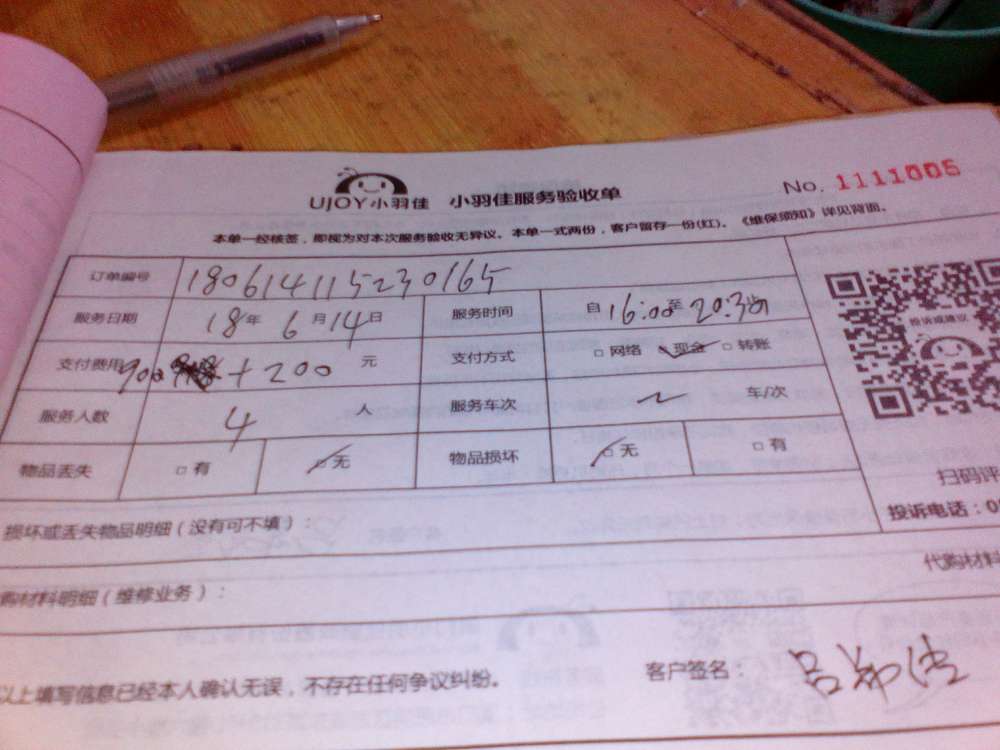 UJOY小羽佳 小羽佳服务验收单 No. 1111005
本单一经核签，即视为对本次服务验收无异议。本单一式两份，客户留存一份(红)。《维保须知》详见背面。
订单编号 180614115230165
服务日期 18年 6月14日 服务时间 自16:00至20:30
支付费用 900 + 200 元 支付方式 □网络 ☑现金 □转账
服务人数 4 人 服务车次 2 车/次
物品丢失 □有 ☑无 物品损坏 ☑无 □有
投诉或建议
扫码评
投诉电话：0
损坏或丢失物品明细（没有可不填）：
代购材料
购材料明细（维修业务）：
以上填写信息已经本人确认无误，不存在任何争议纠纷。 客户签名：